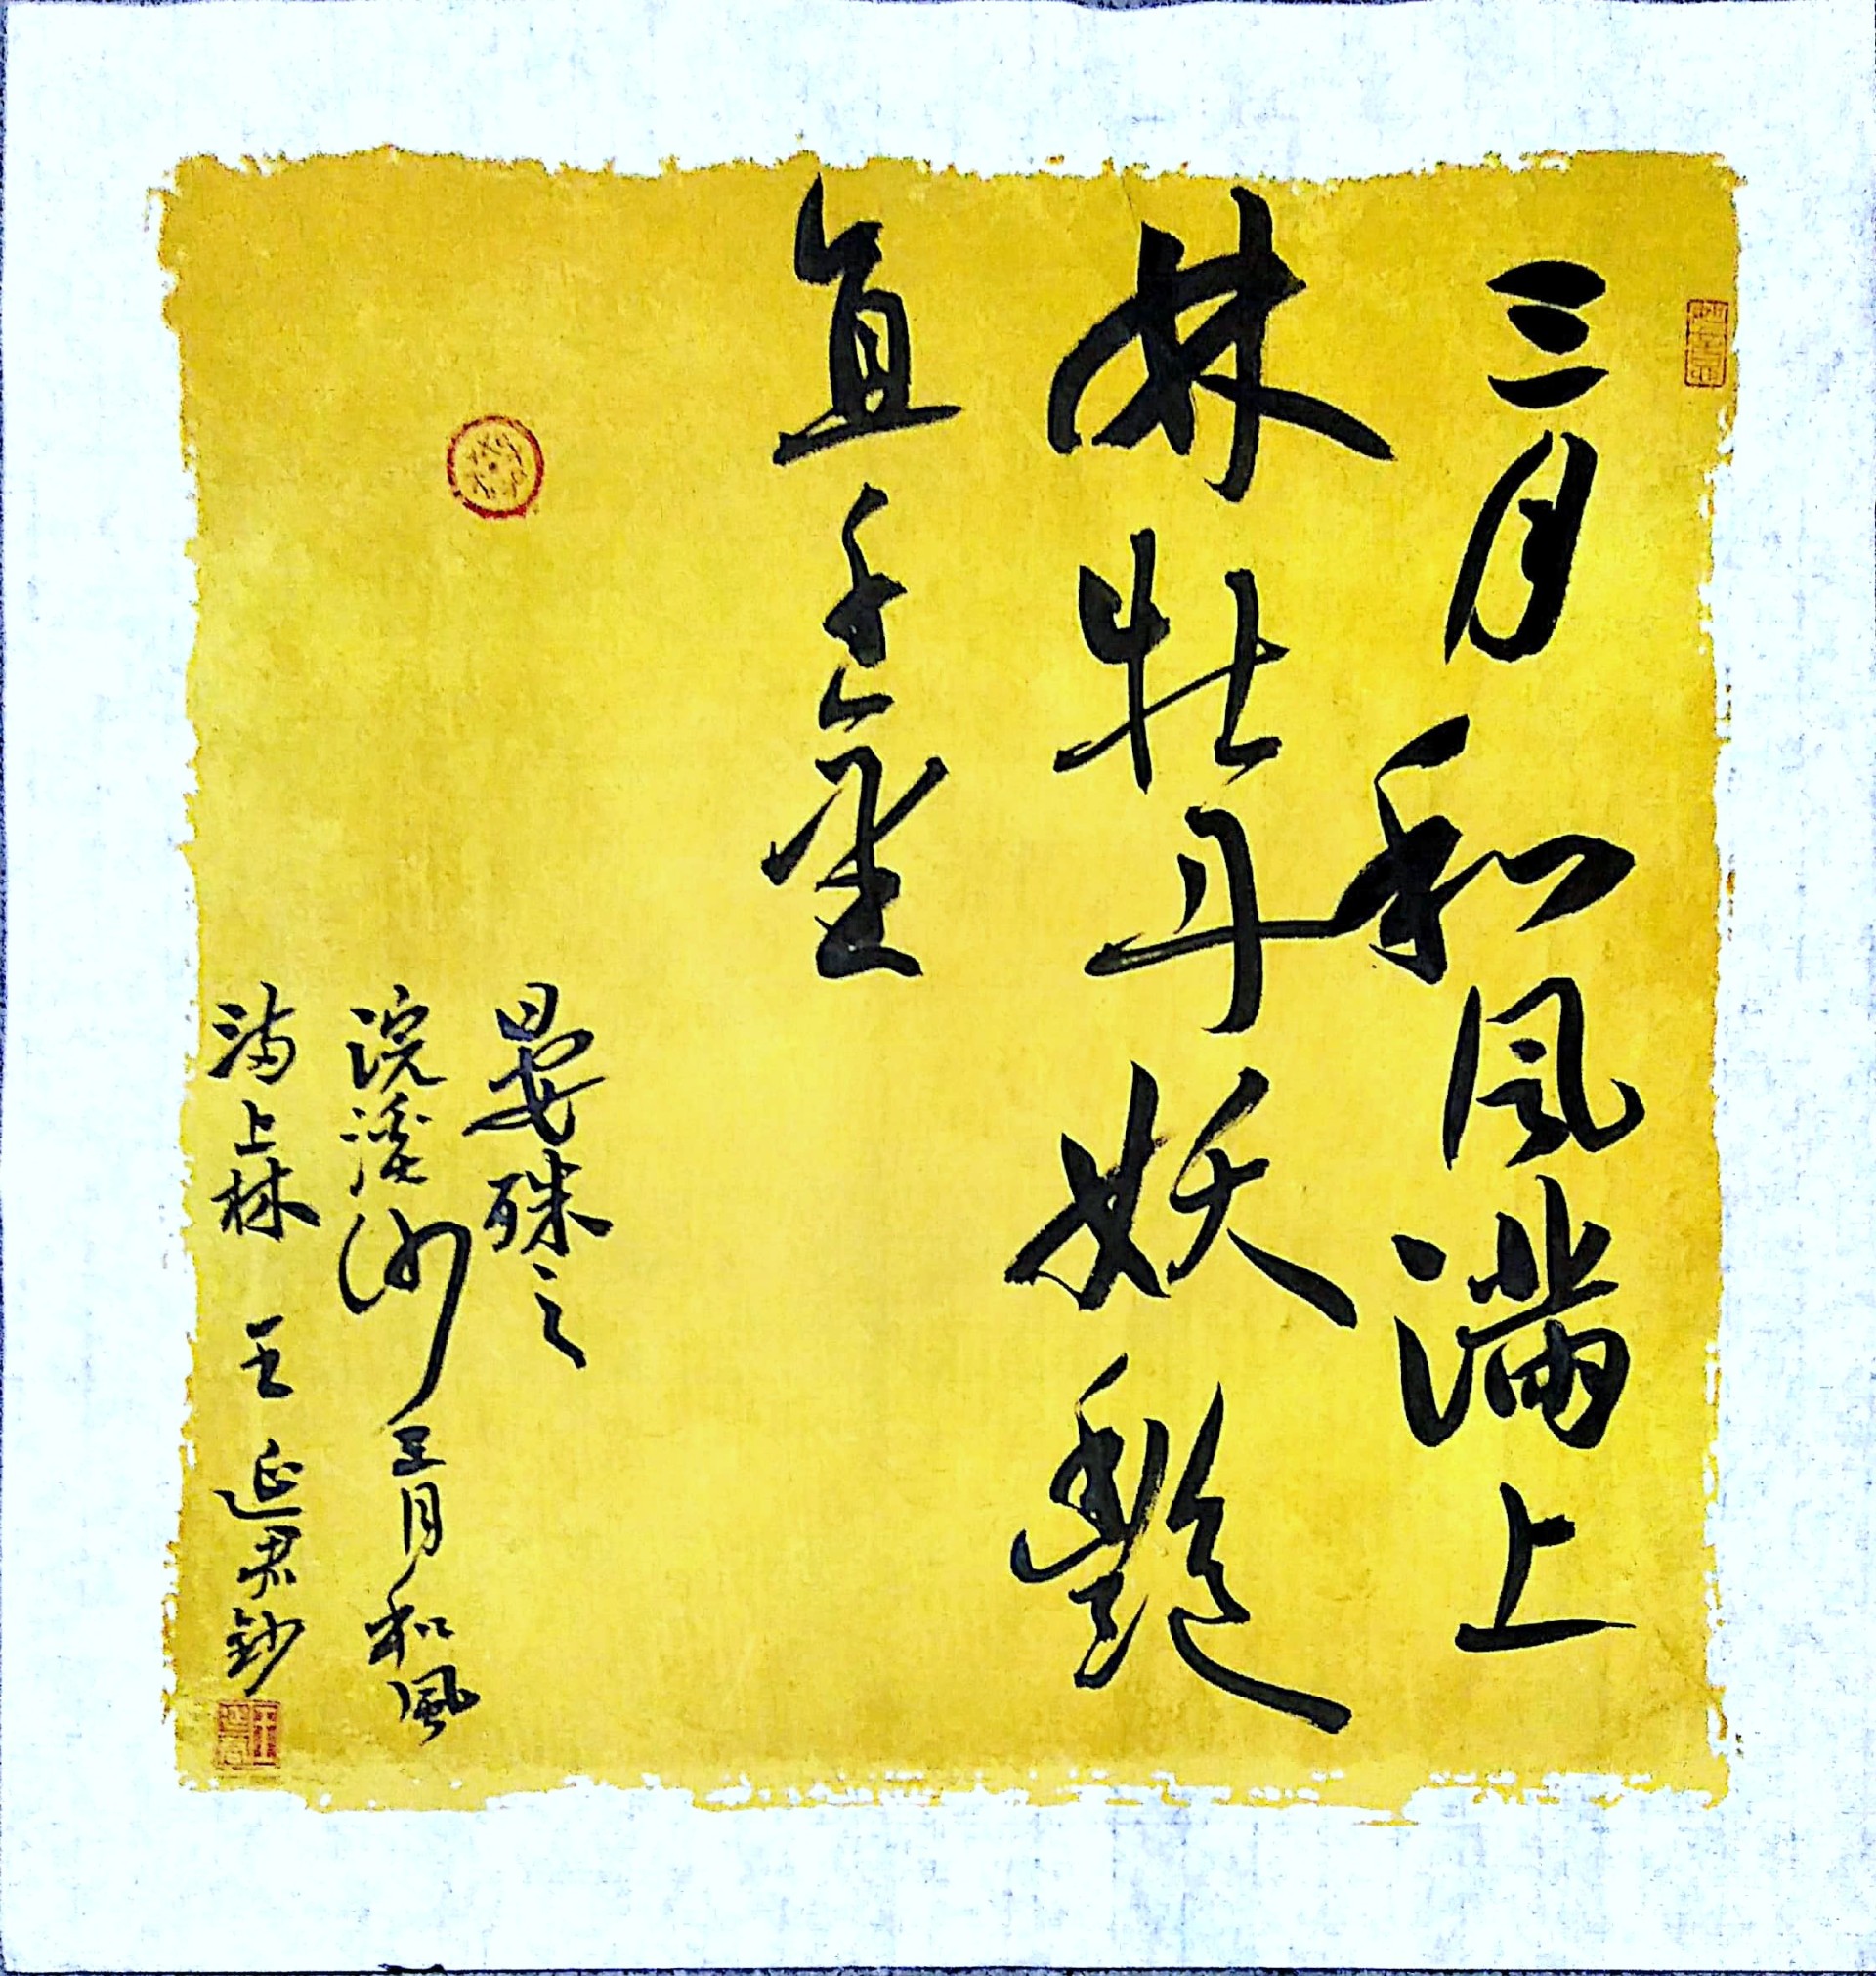 三月和風滿上
林牡丹妖艷
直千金
晏殊之
浣溪沙三月和風
滿上林 王延君鈔